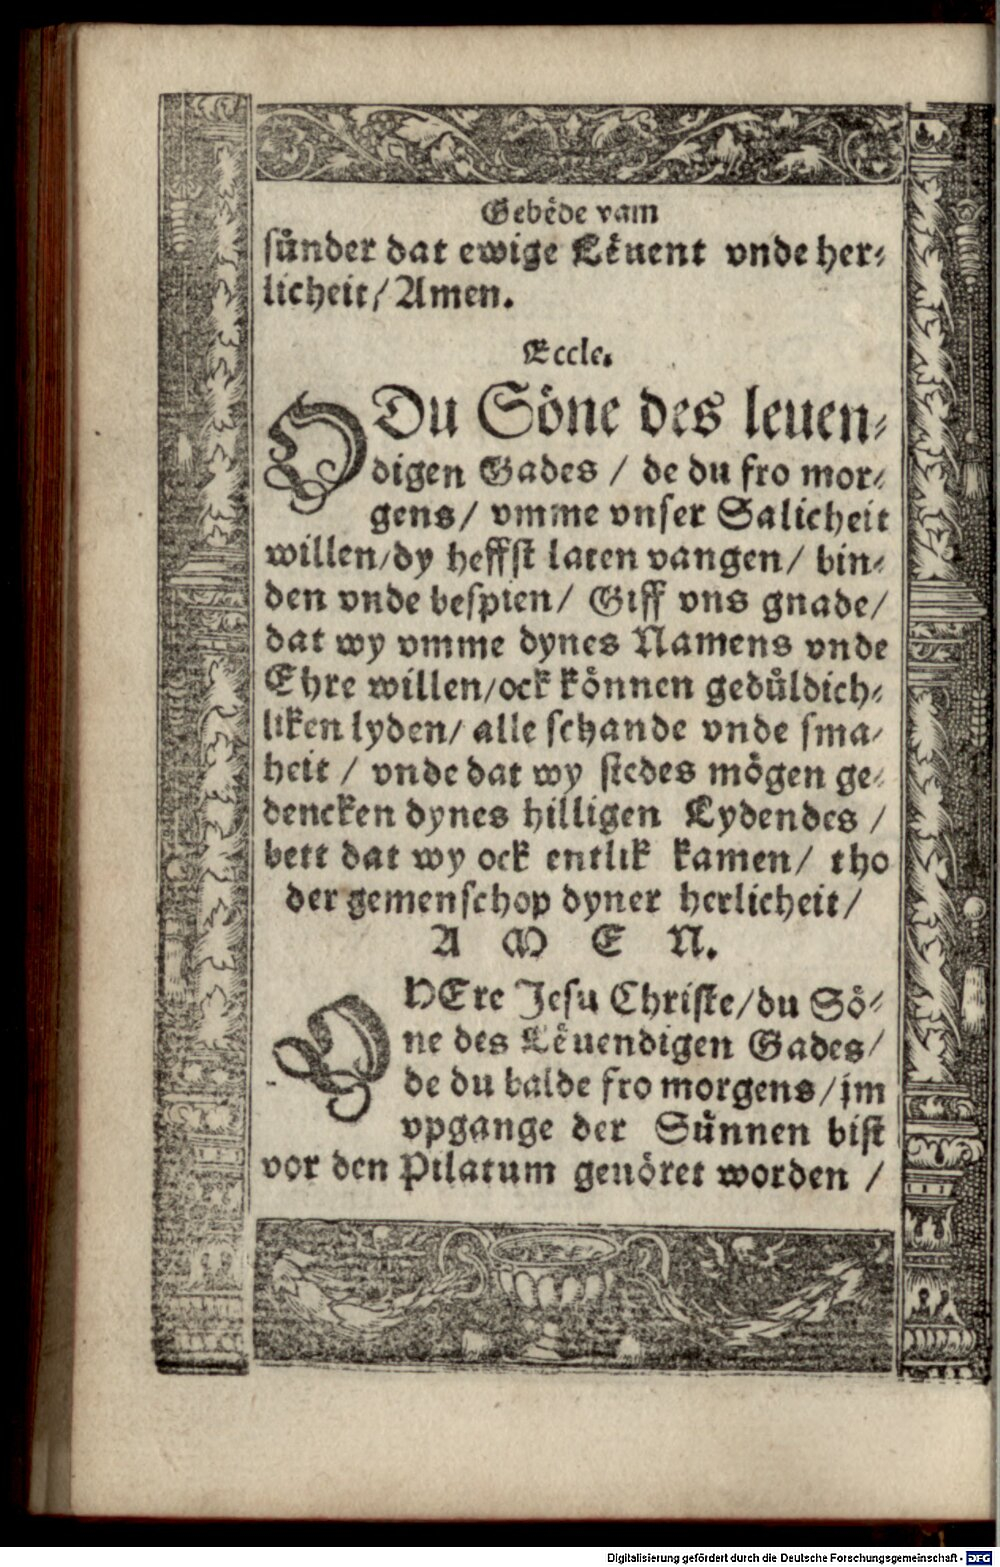 Gebëde vam
sünder dat ewige Lëuent vnde her⸗
licheit/ Amen.
Eccle.
O Du Söne des leuen⸗
digen Gades / de du fro mor⸗
gens/ vmme vnser Salicheit
willen/dy heffst laten vangen/ bin⸗
den vnde bespien/ Giff vns gnade/
dat wy vmme dynes Namens vnde
Ehre willen/ock können gedüldich⸗
liken lyden/ alle schande vnde sma⸗
heit / vnde dat wy stedes mögen ge⸗
dencken dynes hilligen Lydendes /
bett dat wy ock entlik kamen/ tho
der gemenschop dyner herlicheit/
A M E N.
O HEre Jesu Christe/du Sö⸗
ne des Lëuendigen Gades/
de du balde fro morgens/jm
vpgange der Sünnen bist
vor den Pilatum geuöret worden /
Digitalisierung gefördert durch die Deutsche Forschungsgemeinschaft - DFG